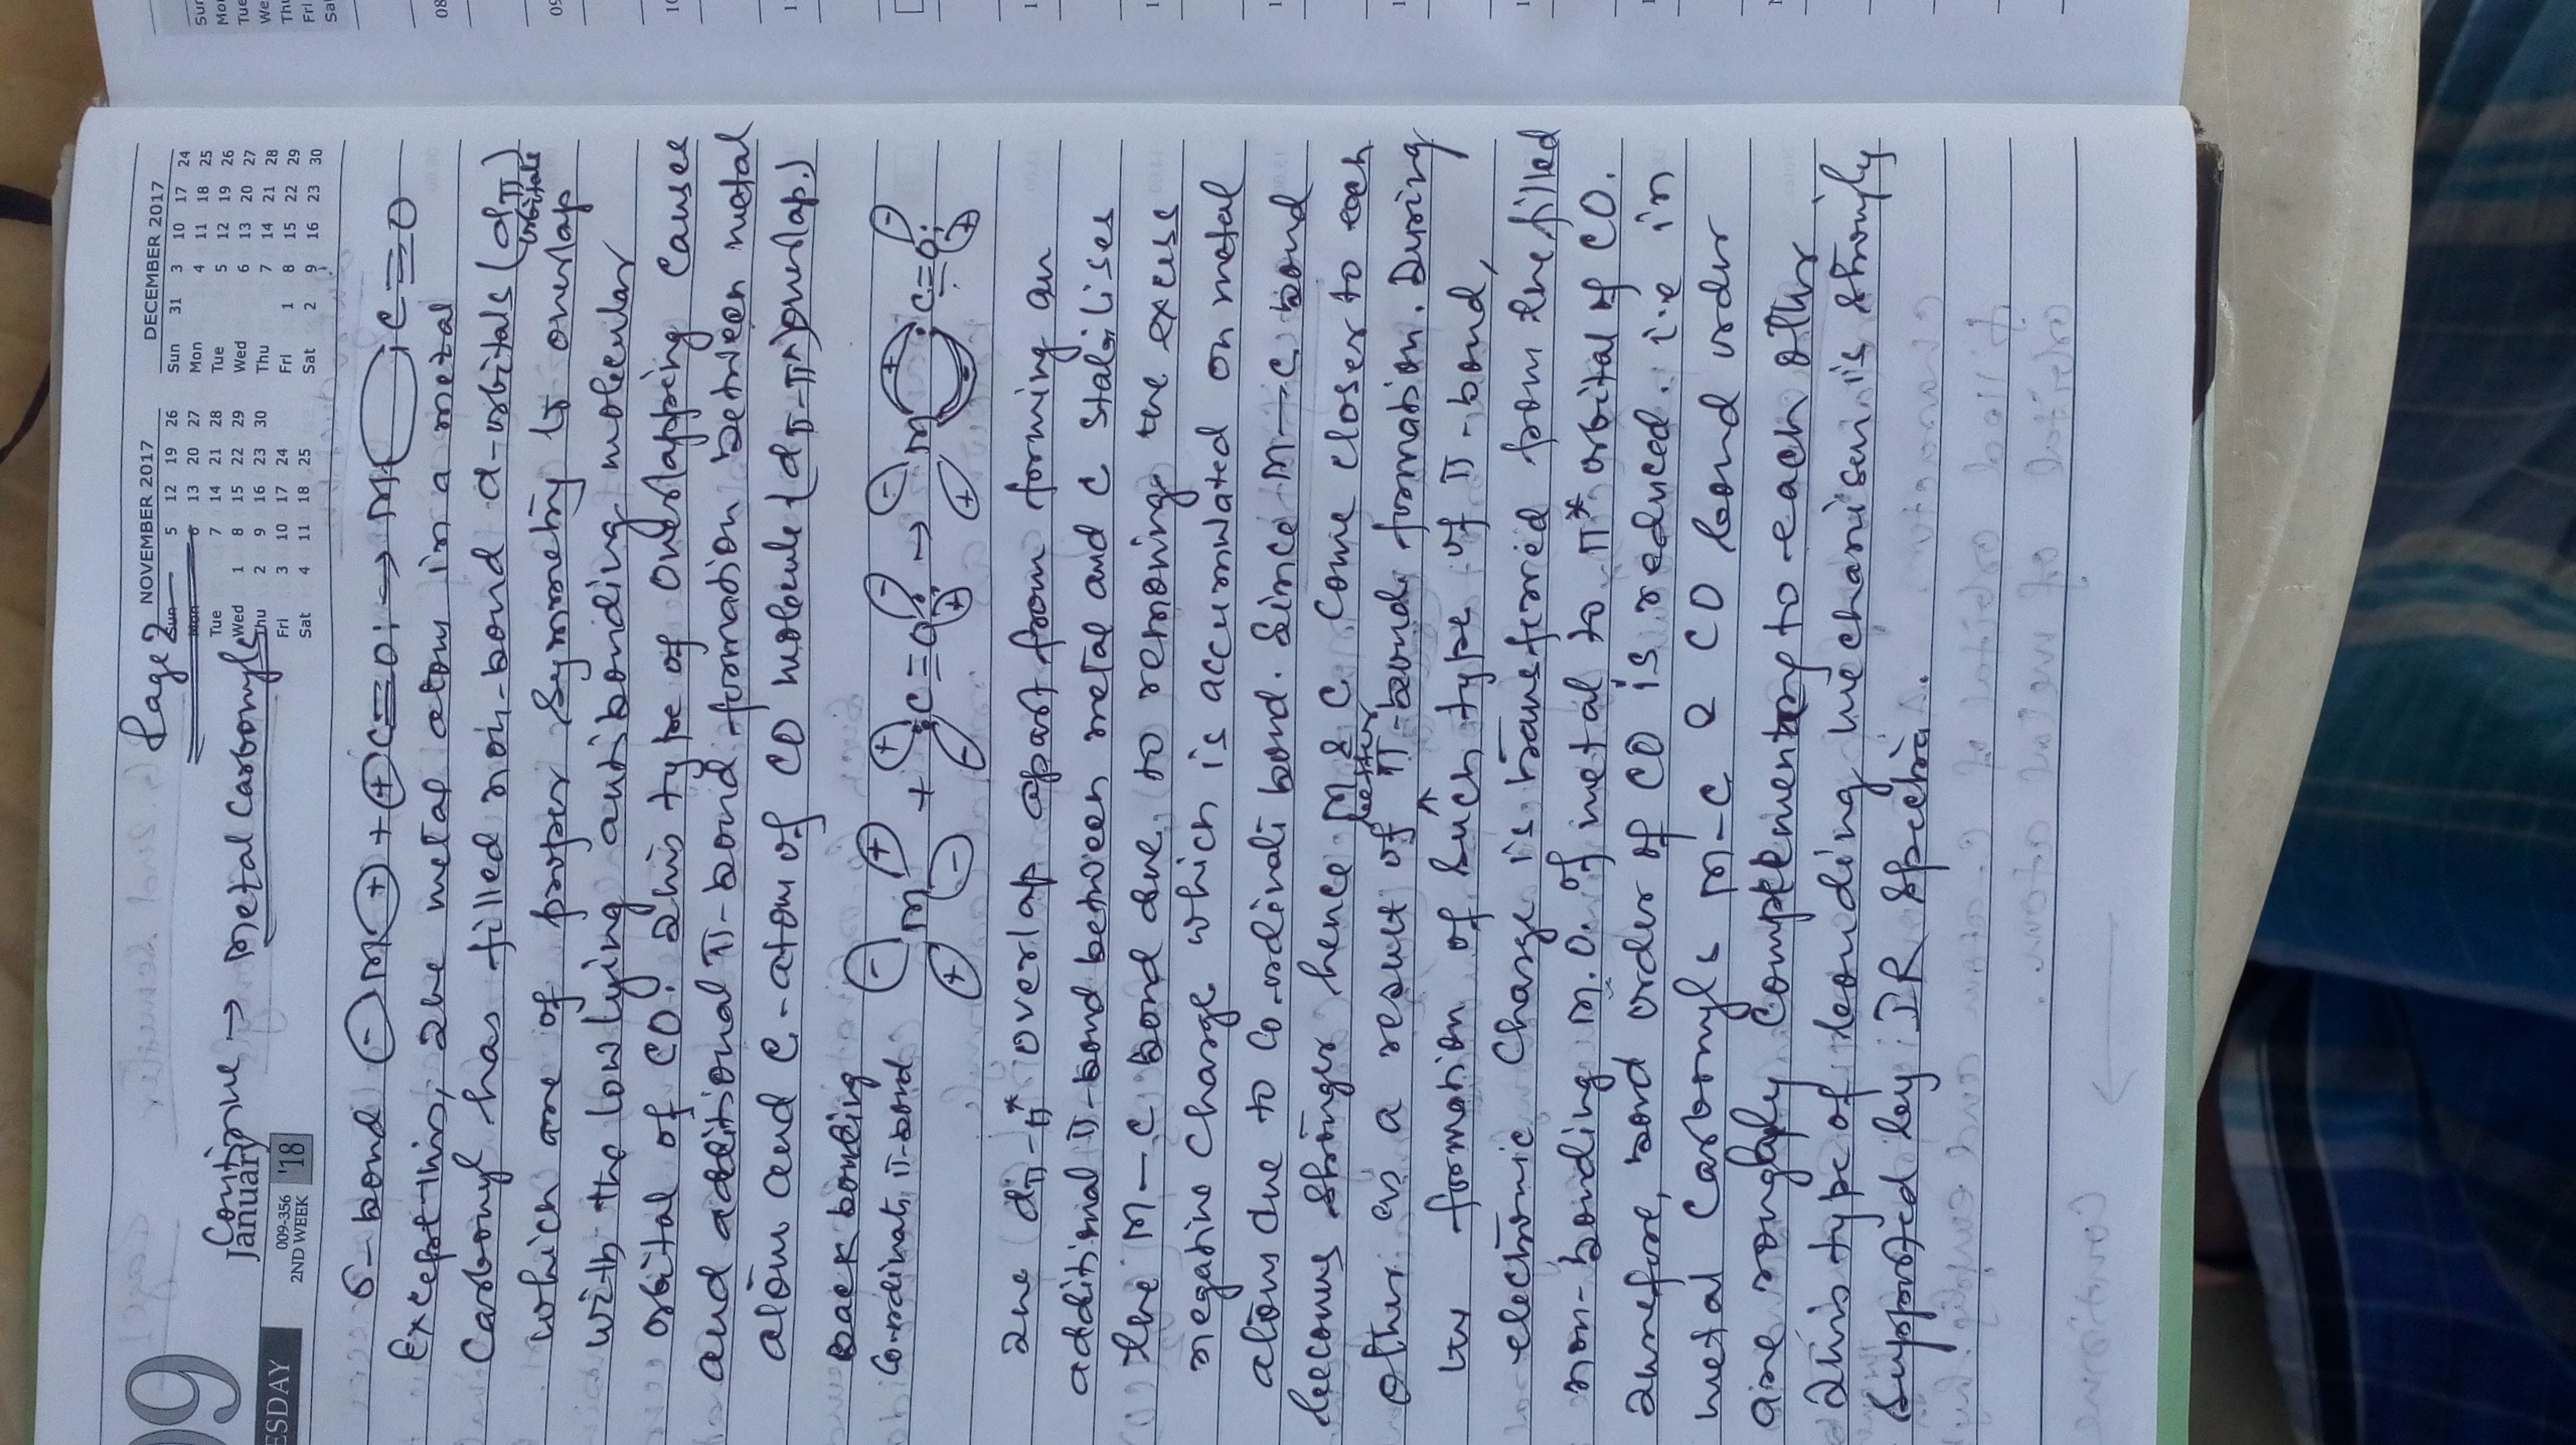 Page 2
NOVEMBER 2017
Sun 5 12 19 26
Mon 6 13 20 27
Tue 7 14 21 28
Wed 1 8 15 22 29
Thu 2 9 16 23 30
Fri 3 10 17 24
Sat 4 11 18 25
DECEMBER 2017
Sun 31 3 10 17 24
Mon 4 11 18 25
Tue 5 12 19 26
Wed 6 13 20 27
Thu 7 14 21 28
Fri 1 8 15 22 29
Sat 2 9 16 23 30
09
ESDAY
January
009-356
2ND WEEK
'18
Continue → Metal Carbonyls
σ-bond (-)M(+) + (+)C≡O: → M :C≡O
Except this, the metal atom in a metal
Carbonyl has filled non-bond d-orbitals (dπ orbitals)
which are of proper symmetry to overlap
with the lowlying antibonding molecular
orbital of CO. This type of overlapping causes
and additional π-bond formation between metal
atom and C-atom of CO molecule (dπ-π*)overlap.)
Back bonding
Co-ordinate π-bond
(-) M (+) + (+) :C=O: (-) → (-) M (+) :C=O: (-)
(+) (-) (-) (+) (+) (-) (+)
The dπ-π* overlap apart from forming an
additional π-bond between metal and C stabilises
the M-C bond due to removing the excess
negative charge which is accumulated on metal
atom due to Co-ordinate bond. Since M-C bond
becomes stronger hence M & C come closer to each
other as a result of better π-bond formation. During
the formation of such type of π-bond,
electronic charge is transferred from the filled
non-bonding M.O. of metal to π* orbital of CO.
Therefore, bond order of CO is reduced. i.e in
metal Carbonyls M-C & CO bond order
are roughly complementary to each other
This type of bonding mechanism is strongly
Supported by IR Spectra.